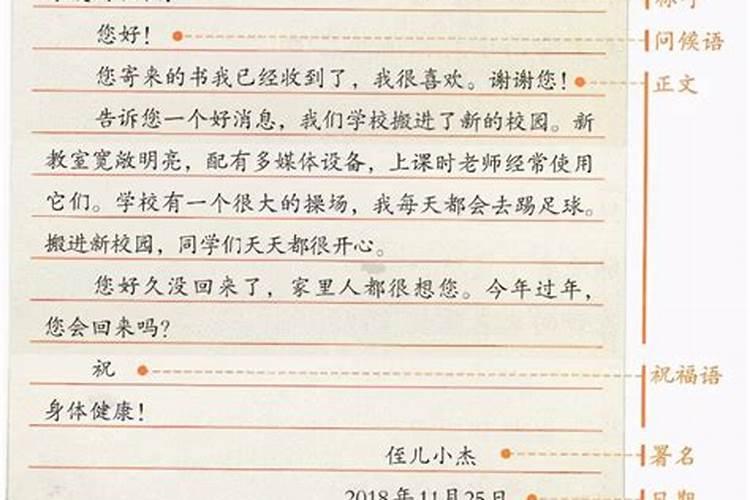 您好！
问候语
您寄来的书我已经收到了，我很喜欢。谢谢您！
正文
告诉您一个好消息，我们学校搬进了新的校园。新
教室宽敞明亮，配有多媒体设备，上课时老师经常使用
它们。学校有一个很大的操场，我每天都会去踢足球。
搬进新校园，同学们天天都很开心。
您好久没回来了，家里人都很想您。今年过年，
您会回来吗？
祝
祝福语
身体健康！
侄儿小杰
署名
2018年11月25日
日期